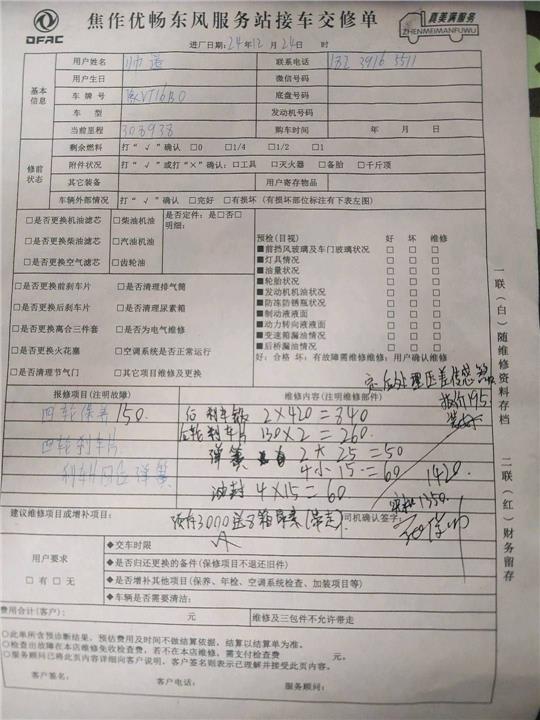 DFAC
焦作优畅东风服务站接车交修单
真美满服务
ZHENMEIMANFUWU
进厂日期: 24年12月24日 时
基本信息
用户姓名 联系电话
用户生日 微信号码
车牌号 底盘号码
车型 发动机号码
当前里程 303938 购车时间 年 月 日
修前状态
剩余燃料 打“√”确认 □0 □1/4 □1/2 □1
附件状况 打“√”或打“×”确认: □工具 □灭火器 □备胎 □千斤顶
其它装备 用户寄存物品
车辆外部情况 打“√”确认 □完好 □有损坏 (有损坏部位标注有下表左图)
□是否更换机油滤芯 □柴油机油 是否定件: 是□否□
明细:
□是否更换柴油滤芯 □汽油机油
□是否更换空气滤芯 □齿轮油
□是否更换前刹车片 □是否清理排气筒
□是否更换后刹车片 □是否清理尿素箱
□是否更换离合三件套 □是否为电气维修
□是否更换火花塞 □空调系统是否正常运行
□是否清理节气门 □其它项目维修及更换
预检(目视) 好 坏 维修
■前挡风玻璃及车门玻璃状况 □ □ □
■灯具情况 □ □ □
■油量状况 □ □ □
■轮胎状况 □ □ □
■发动机机油状况 □ □ □
■防冻防锈瓶状况 □ □ □
■制动液液面 □ □ □
■动力转向液液面 □ □ □
■变速箱漏油情况 □ □ □
■后桥漏油情况 □ □ □
好: 合格 坏: 有故障需维修维修: 用户确认维修
一联(白)随维修资料存档
二联(红)财务留存
后处理压差传感器
报价195
报修项目(注明故障) 维修内容(注明维修部件)
四轮保养 150
四轮刹车片
2×420=840
刹车片 130×2=260
弹簧 2×25=50
4×15=60
1420
油封 4×15=60
1350
建议维修项目或增补项目:
司机确认签字:
用户要求
□有 □无
◆交车时限
◆是否归还更换的备件(保修项目不退还旧件)
◆是否增加其他项目(保养、年检、空调系统检查、加装项目等)
◆车辆是否需要清洁:
费用合计(客户): 元 维修及三包件不允许带走
○此单所含预诊断结果、预估费用及时间不做结算依据, 结算以结算单为准。
○检查出故障在本店维修免收检查费, 若不在本店维修, 需支付检查费 元。
○服务顾问已将此页内容详细向客户说明, 客户签名则表示已理解并接受此页内容。
客户签名: 客户电话: 服务顾问: